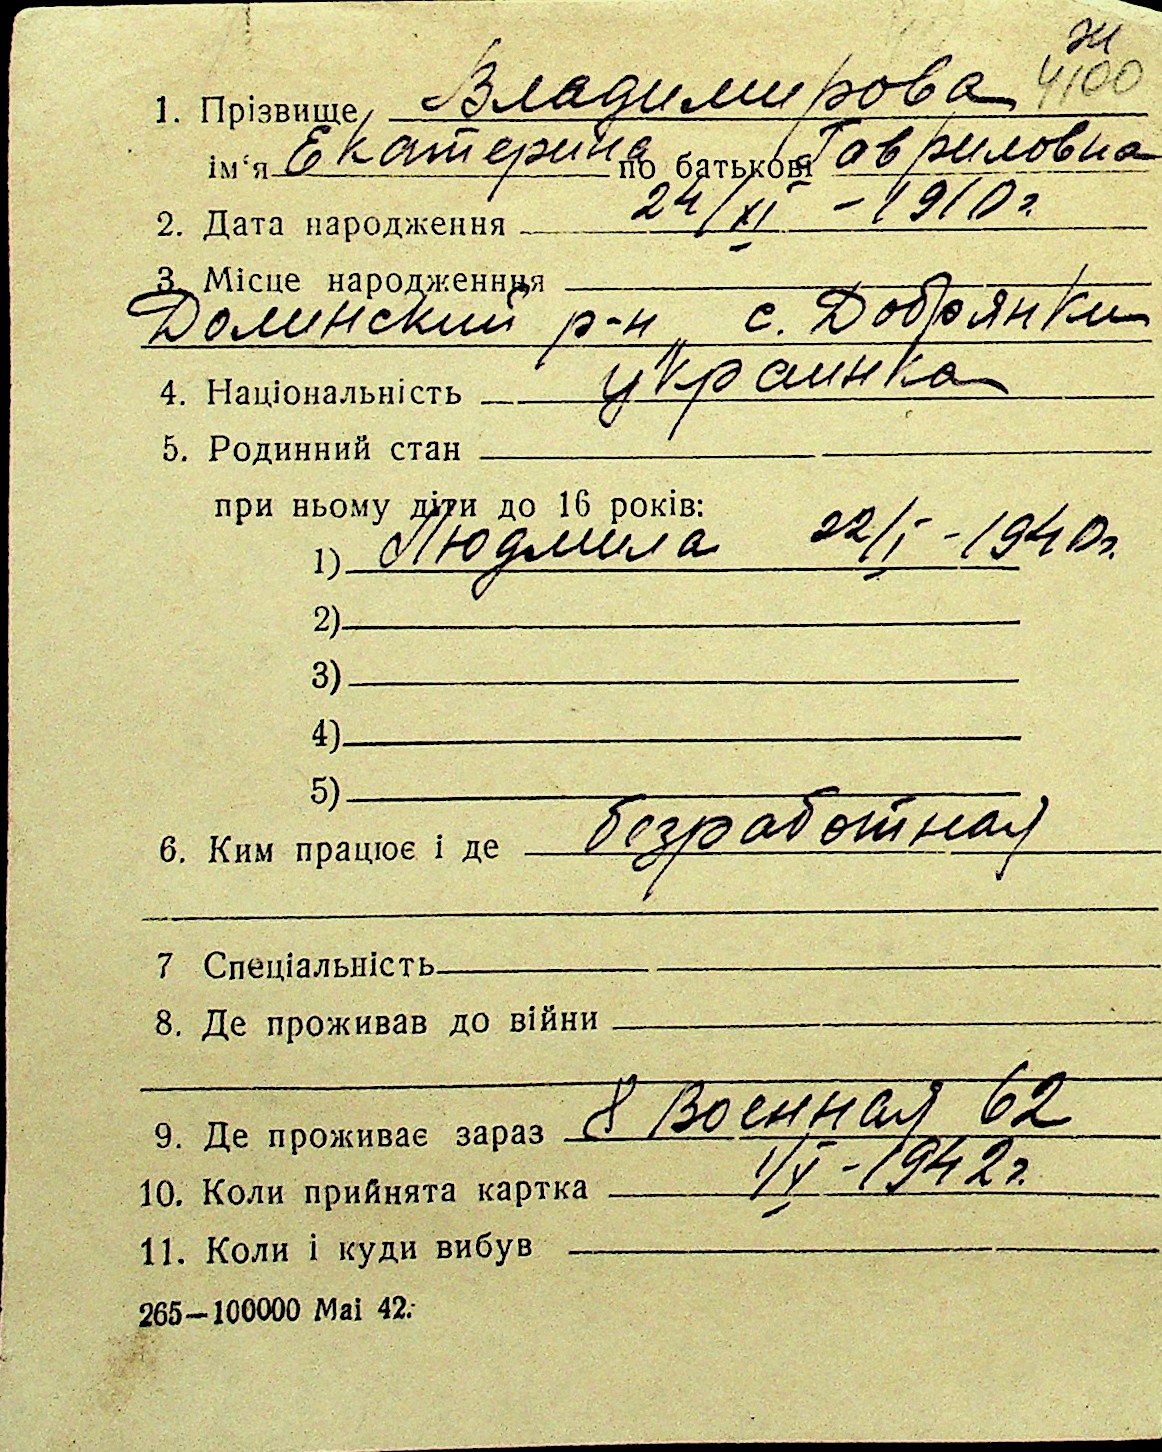 Ж
4100
1. Прізвище Владимирова
ім'я Екатерина по батькові Гавриловна
2. Дата народження 24/XI - 1910 г.
3. Місце народженння
Долинский р-н с. Добрянки
4. Національність украинка
5. Родинний стан
при ньому діти до 16 років:
1) Людмила 22/I - 1940 г.
2)
3)
4)
5)
6. Ким працює і де безработная
7 Спеціальність
8. Де проживав до війни
9. Де проживає зараз 8 Военная 62
10. Коли прийнята картка 1/X - 1942 г.
11. Коли і куди вибув
265—100000 Mai 42.